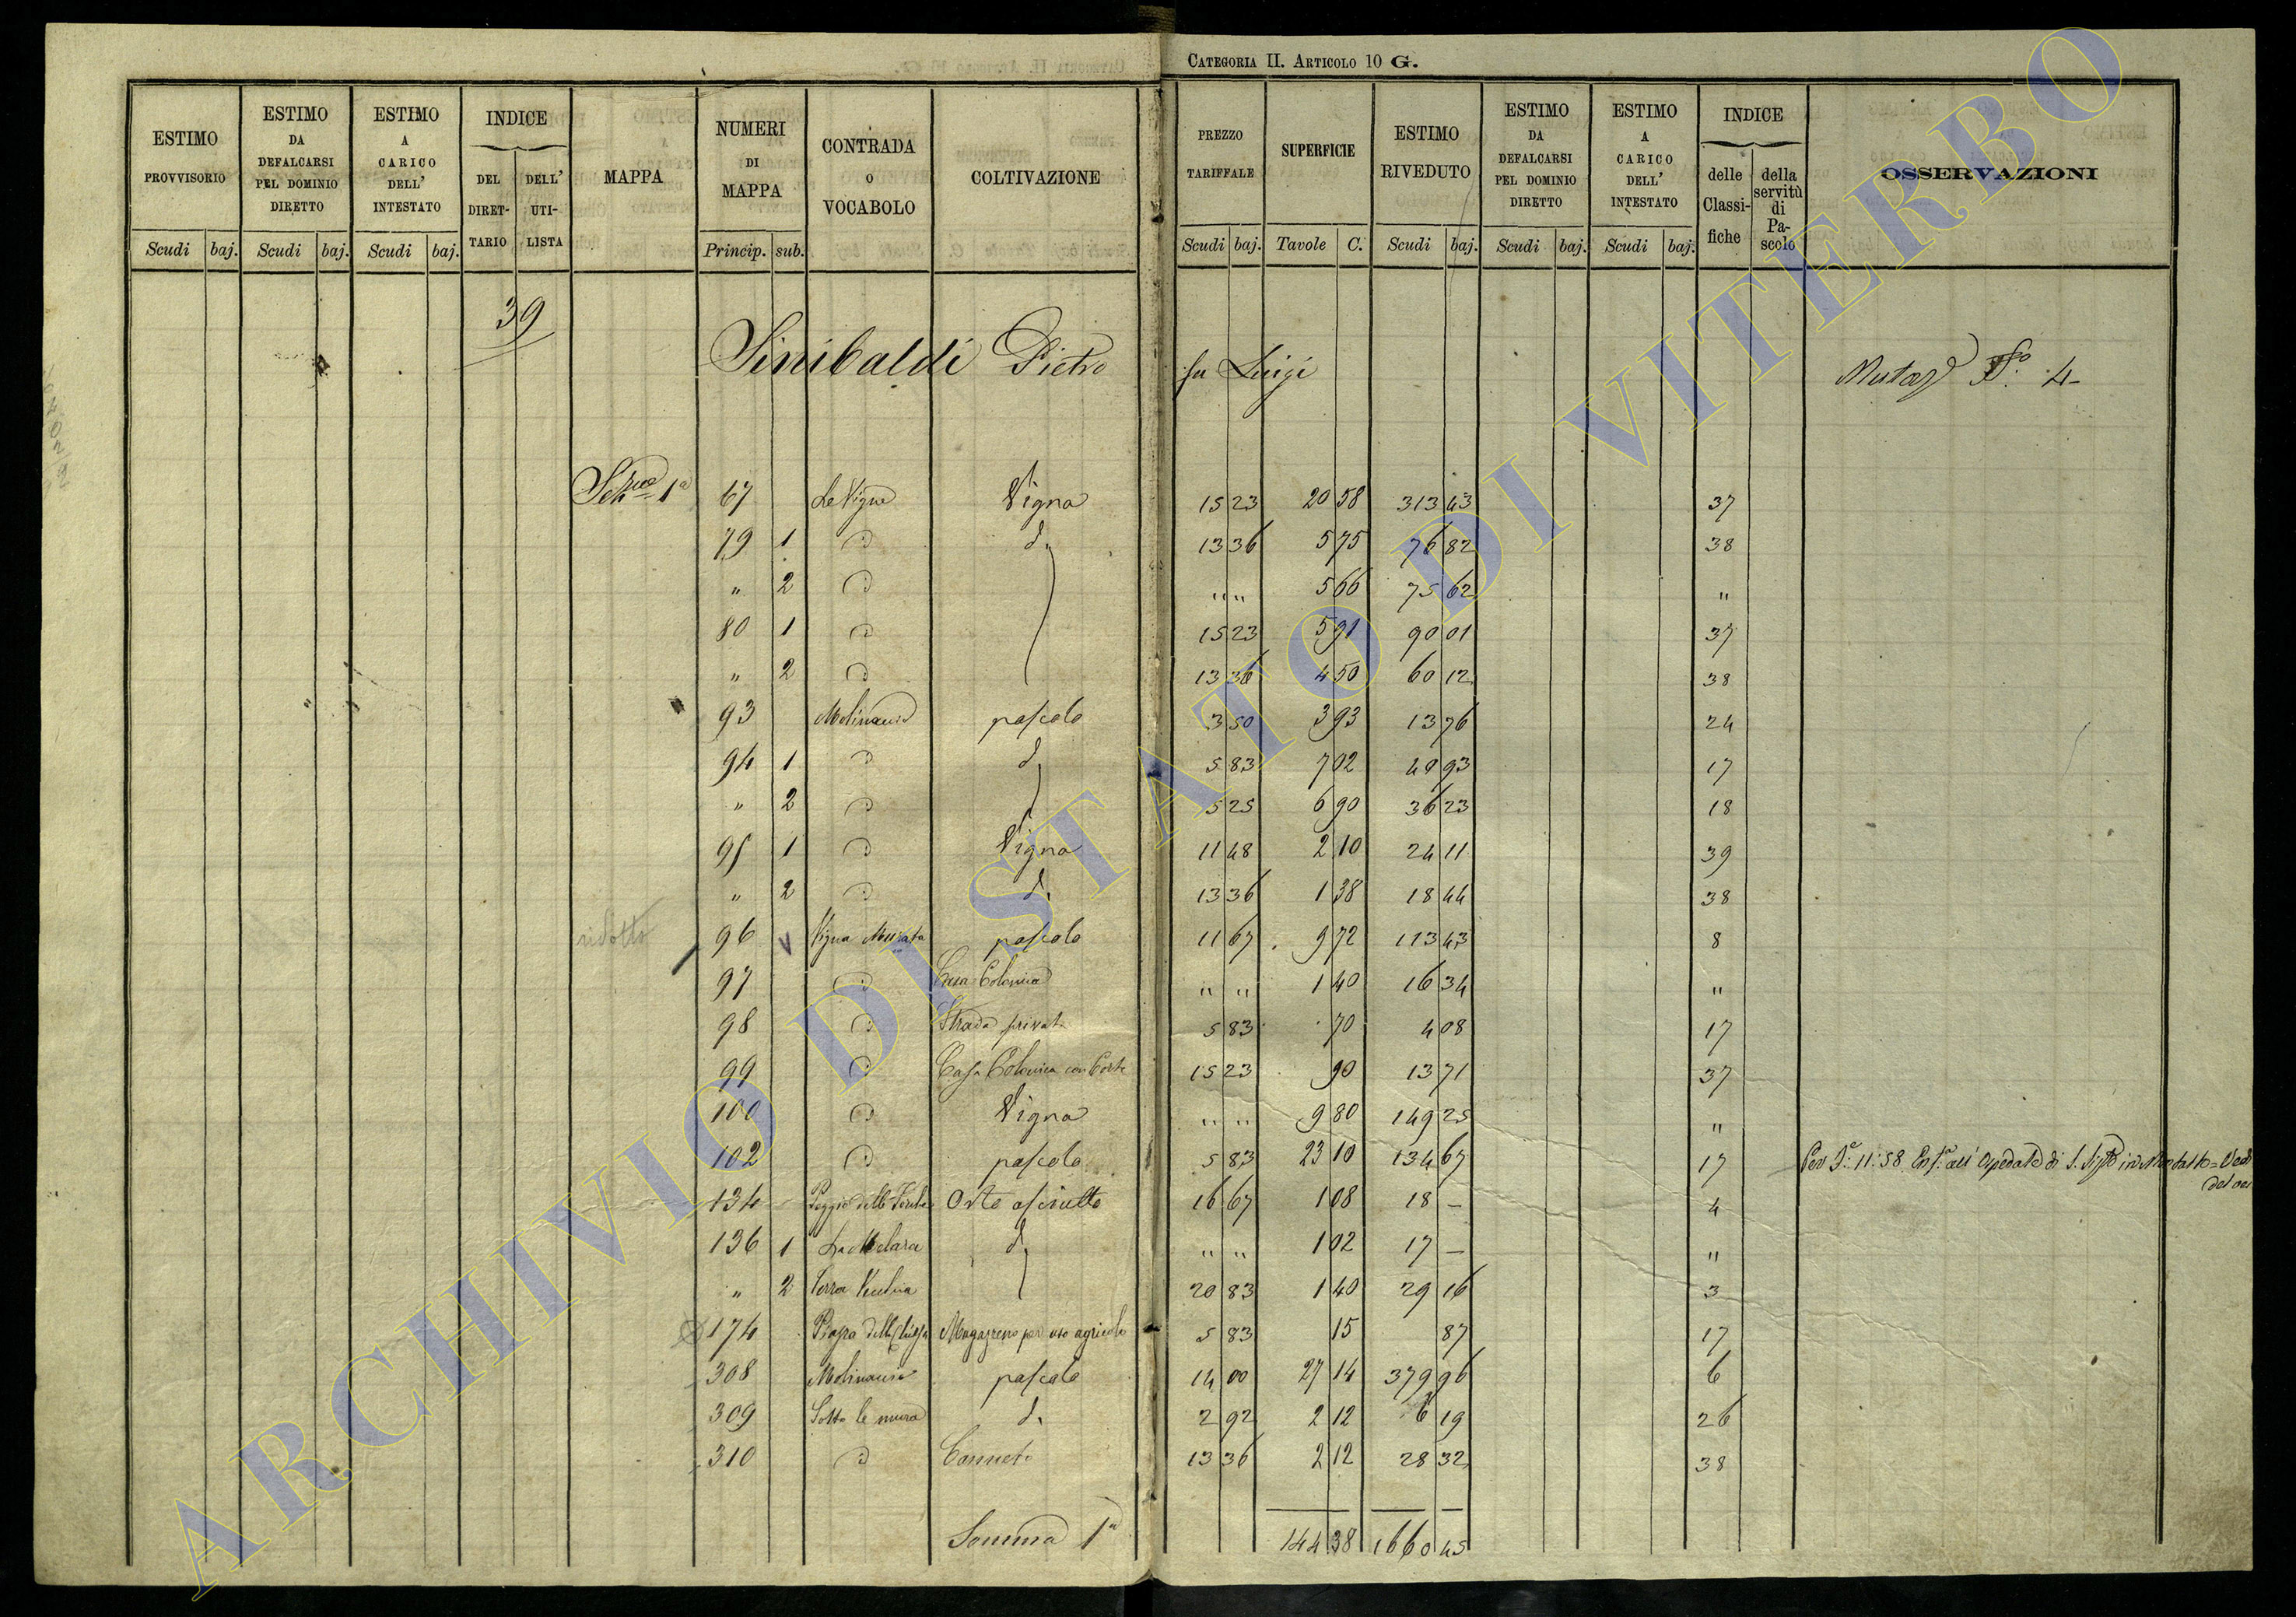 CATEGORIA II. ARTICOLO 10 G.
ESTIMO PROVVISORIO Scudi baj.
ESTIMO DA DEFALCARSI PEL DOMINIO DIRETTO Scudi baj.
ESTIMO A CARICO DELL' INTESTATO Scudi baj.
INDICE DEL DIRETTARIO DELL' UTILISTA
MAPPA
NUMERI DI MAPPA Princip. sub.
CONTRADA o VOCABOLO
COLTIVAZIONE
PREZZO TARIFFALE Scudi baj.
SUPERFICIE Tavole C.
ESTIMO RIVEDUTO Scudi baj.
ESTIMO DA DEFALCARSI PEL DOMINIO DIRETTO Scudi baj.
ESTIMO A CARICO DELL' INTESTATO Scudi baj.
INDICE delle Classifiche della servitù di Pascolo
OSSERVAZIONI
39
Sinibaldi Pietro fu Luigi
1ª 67 Le Vigne Vigna 15 23 20 58 313 43 37
79 1 d. 13 36 5 75 76 82 38
" 2 " " 5 66 75 62 "
80 1 15 23 5 91 90 01 37
" 2 13 36 4 50 60 12 38
93 pascolo 3 50 3 93 13 76 24
94 1 d. 5 83 7 02 40 93 17
" 2 5 25 6 90 36 23 18
95 1 Vigna 11 48 2 10 24 11 39
" 2 d. 13 36 1 38 18 44 38
ridotto 96 Vigna Murata pascolo 11 67 9 72 113 43 8
97 Casa Colonica " " 1 40 16 34 "
98 Strada privata 5 83 70 4 08 17
99 Casa Colonica con Corte 15 23 90 13 71 37
100 Vigna " " 9 80 149 25 "
102 pascolo 5 83 23 10 134 67 17
134 Poggio delle Orto asciutto 16 67 1 08 18 – 4
136 1 La Melara d. " " 1 02 17 – "
" 2 Vecchia 20 83 1 40 29 16 3
174 Magazzeno per uso agricolo 5 83 15 87 17
308 pascolo 14 00 27 14 379 96 6
309 Sotto le mura d. 2 92 2 12 6 19 26
310 Canneto 13 36 2 12 28 32 38
Somma 1ª 144 38 1660 45
ARCHIVIO DI STATO DI VITERBO